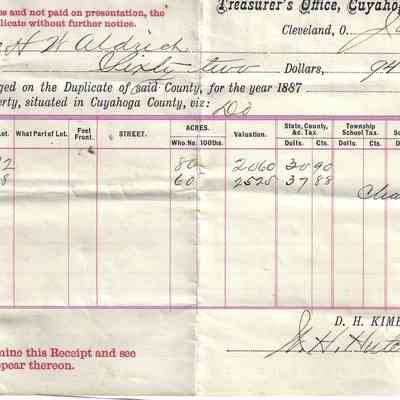 Treasurer's Office, Cuyahog
es and not paid on presentation, the
plicate without further notice.
Cleveland, O.
H W Aldrich
Sixty two Dollars, 94
ged on the Duplicate of said County, for the year 1887
perty, situated in Cuyahoga County, viz: Do
Lot. What Part of Lot. Feet Front. STREET. ACRES. Who. No. 100ths. Valuation. State, County, &c. Tax. Dolls. Cts. Township School Tax. Dolls. Cts. Dolls.
2 80 2060 30 90
8 60 2525 37 88
Cha
D. H. KIMB
W. H. Hutc
mine this Receipt and see
ppear thereon.